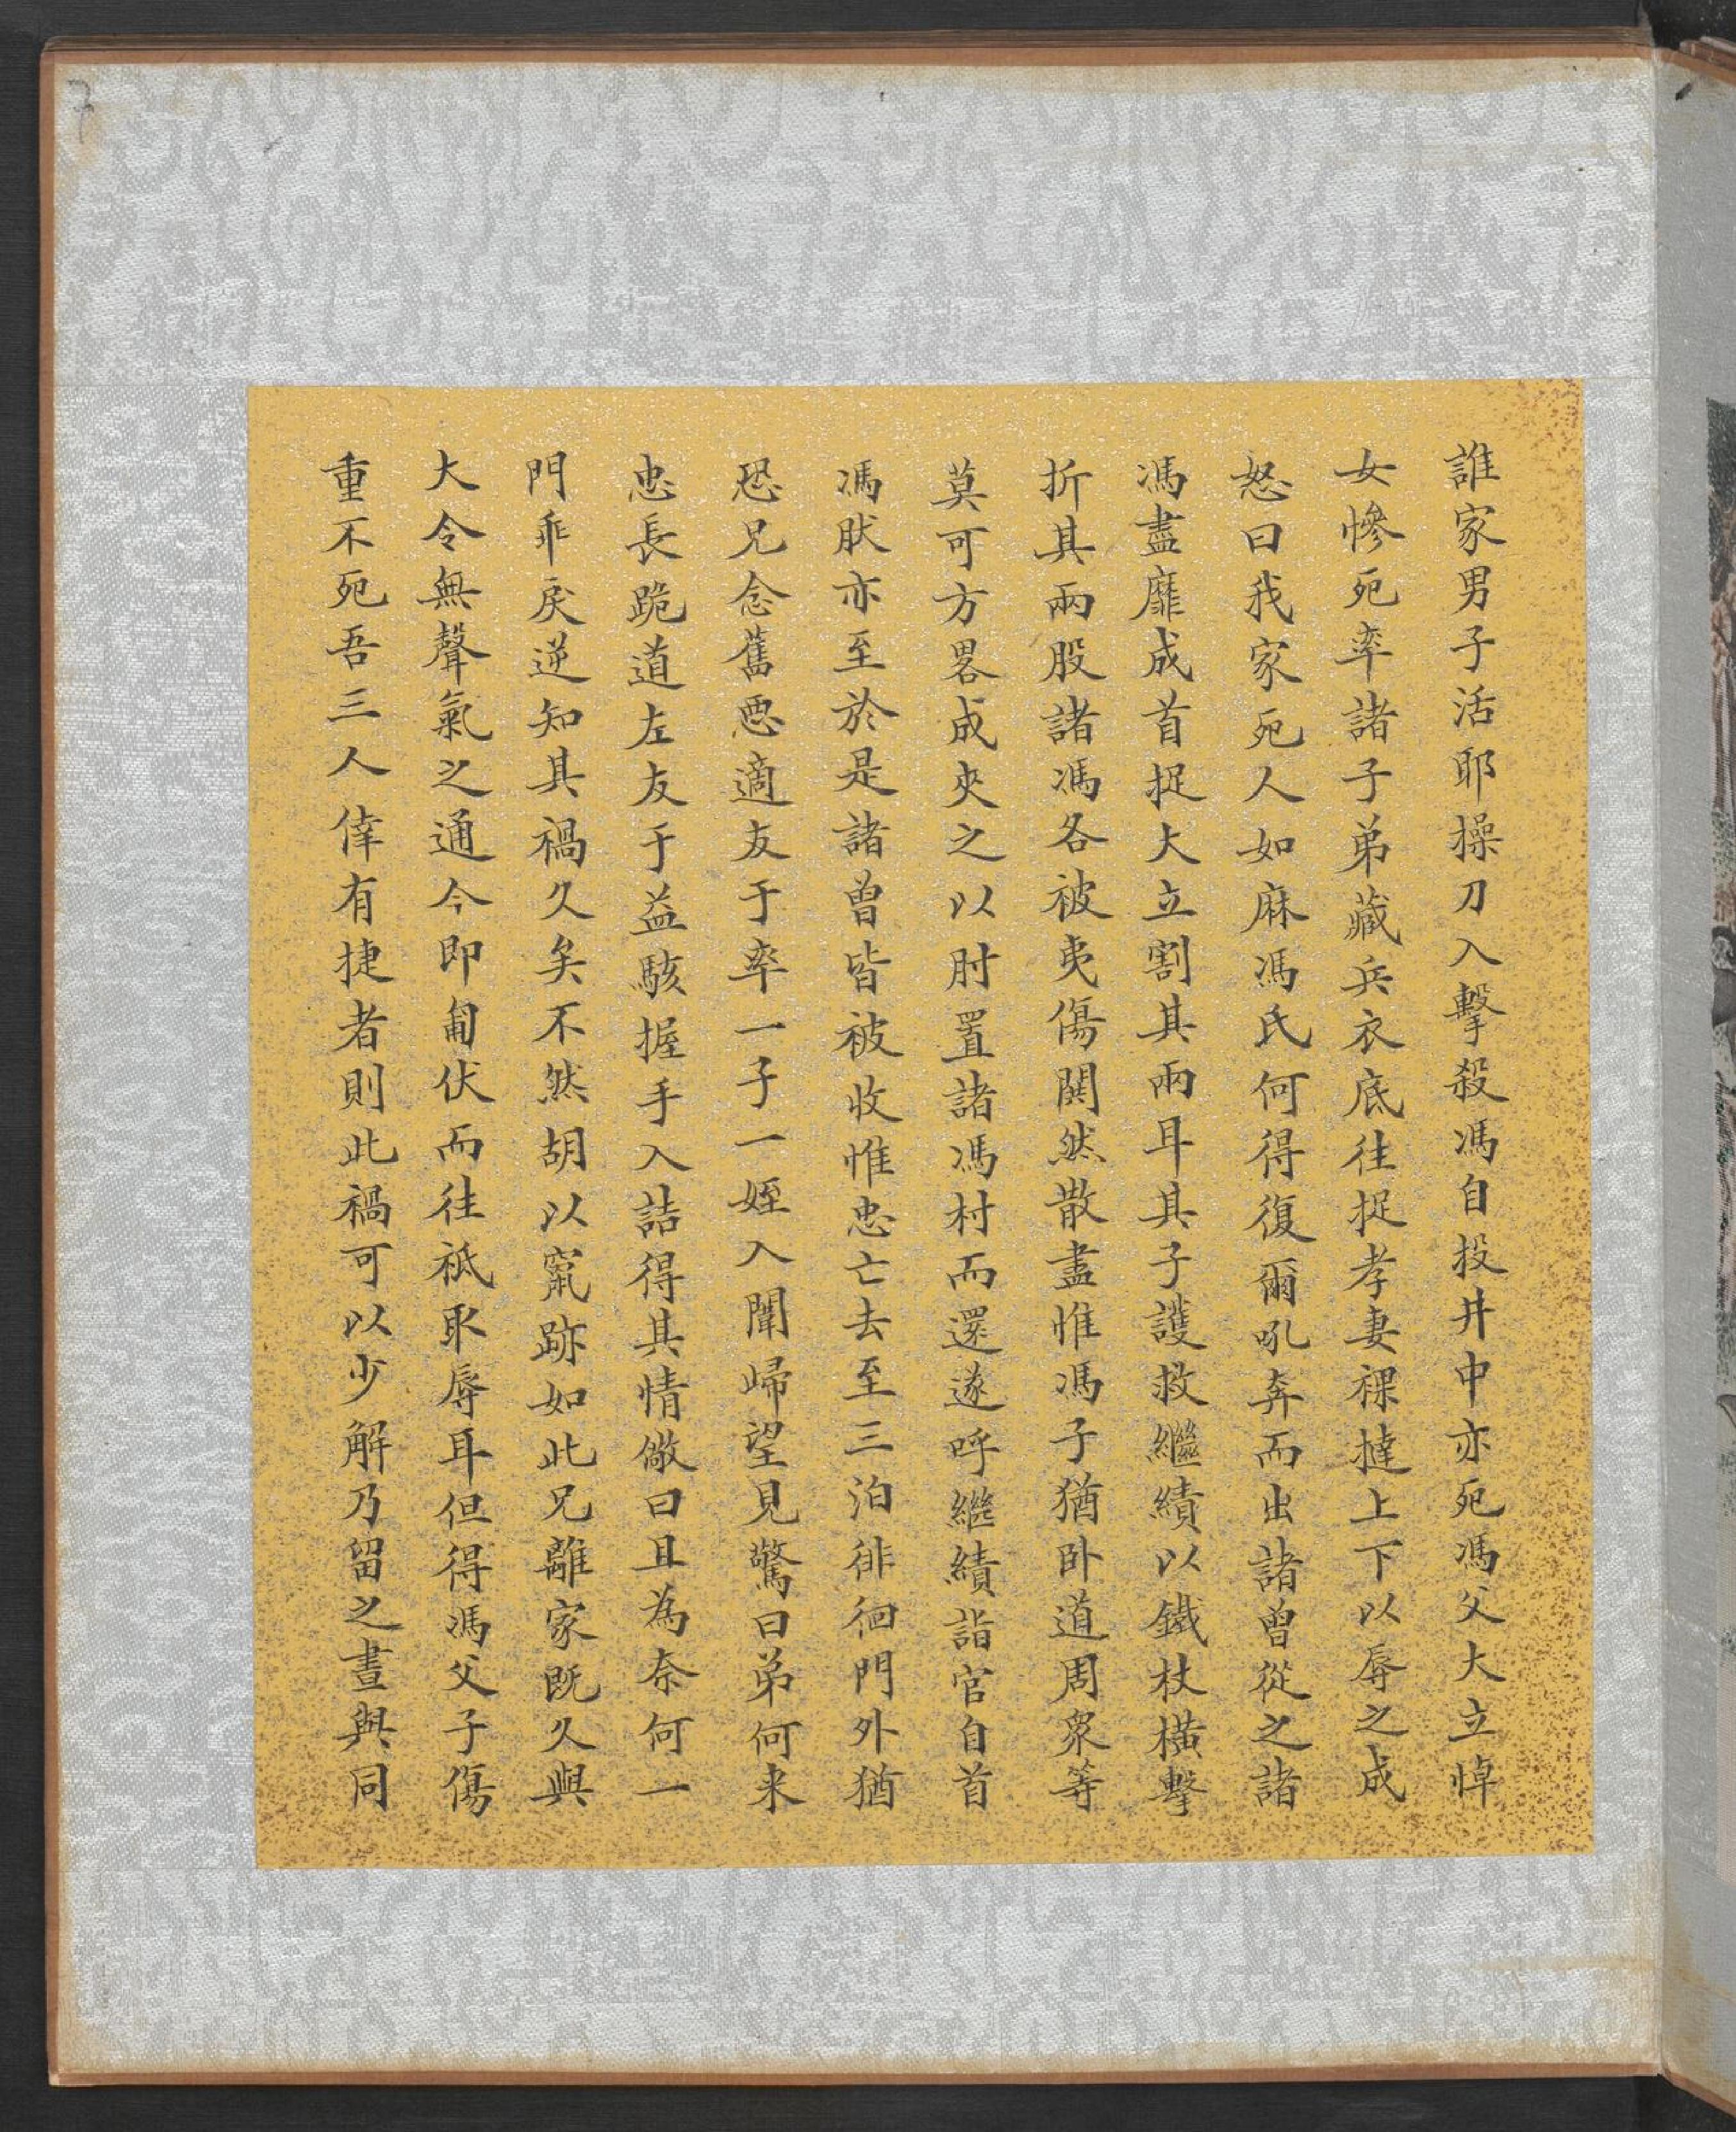 7
誰家男子活耶操刀入擊殺馮自投井中亦死馮父大立悼
女慘死率諸子弟藏兵衣底往捉孝妻裸撻上下以辱之成
怒曰我家死人如麻馮氏何得復爾吼奔而出諸曾從之諸
馮盡靡成首捉大立割其兩耳其子護救繼績以鐵杖橫擊
折其兩股諸馮各被夷傷鬨然散盡惟馮子猶卧道周眾等
莫可方畧成夾之以肘置諸馮村而還遂呼繼績詣官自首
馮狀亦至於是諸曾皆被收惟忠亡去至三泊徘徊門外猶
恐兄念舊惡適友于率一子一姪入闈歸望見驚曰弟何来
忠長跪道左友于益駭握手入詰得其情儆曰且為奈何一
門乖戾逆知其禍久矣不然胡以竄跡如此兄離家既久與
大令無聲氣之通今即匍伏而往祇取辱耳但得馮父子傷
重不死吾三人倖有捷者則此禍可以少解乃留之晝與同